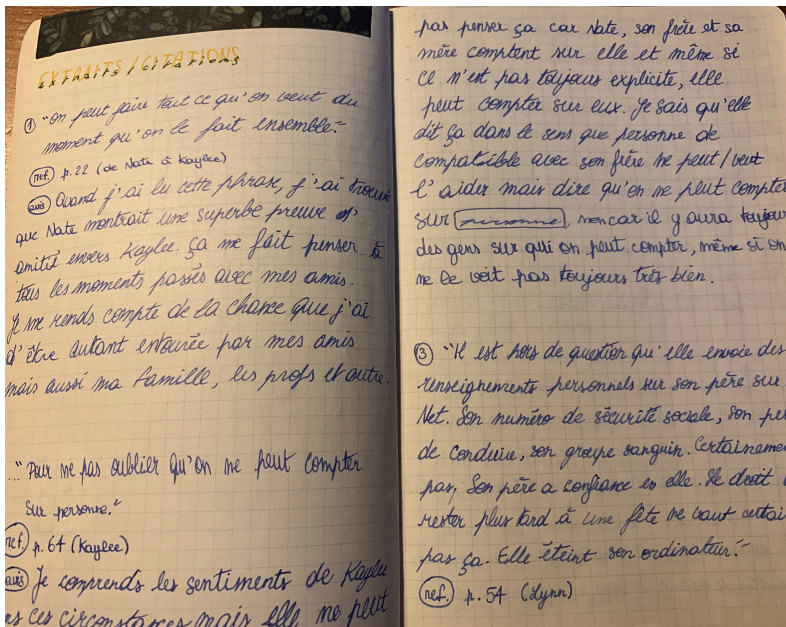 EXTRAITS / CITATIONS
extraits / citations
① "On peut faire tout ce qu'on veut du
moment qu'on le fait ensemble."
(ref.) p.22 (de Nate à Kaylee)
(avis) Quand j'ai lu cette phrase, j'ai trouvé
que Nate montrait une superbe preuve d'
amitié envers Kaylee. ça me fait penser à
tous les moments passés avec mes amis.
Je me rends compte de la chance que j'ai
d'être autant entourée par mes amis
mais aussi ma famille, les profs et autre.
..." Pour ne pas oublier qu'on ne peut compter
sur personne."
ref.) p.64 (Kaylee)
(avis) Je comprends les sentiments de Kaylee
ns ces circonstances mais elle ne peut
pas penser ça car Nate, son frère et sa
mère comptent sur elle et même si
ce n'est pas toujours explicite, elle
peut compter sur eux. Je sais qu'elle
dit ça dans le sens que personne de
compatible avec son frère ne peut / veut
l'aider mais dire qu'on ne peut compter
sur personne, non car il y aura toujou
des gens sur qui on peut compter, même si on
ne le voit pas toujours très bien.
③ "Il est hors de question qu'elle envoie des
renseignements personnels sur son père sur
Net. Son numéro de sécurité sociale, son pe
de conduire, son groupe sanguin. Certaineme
pas, Son père a confiance en elle. Le droit
rester plus tard à une fête ne vaut certai
pas ça. Elle éteint son ordinateur."
(ref.) p.54 (Lynn)